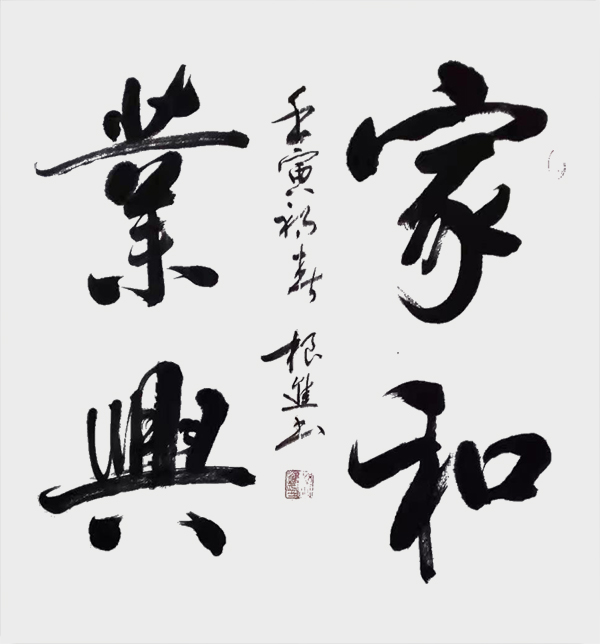 家和
業興
壬寅初春 根進书